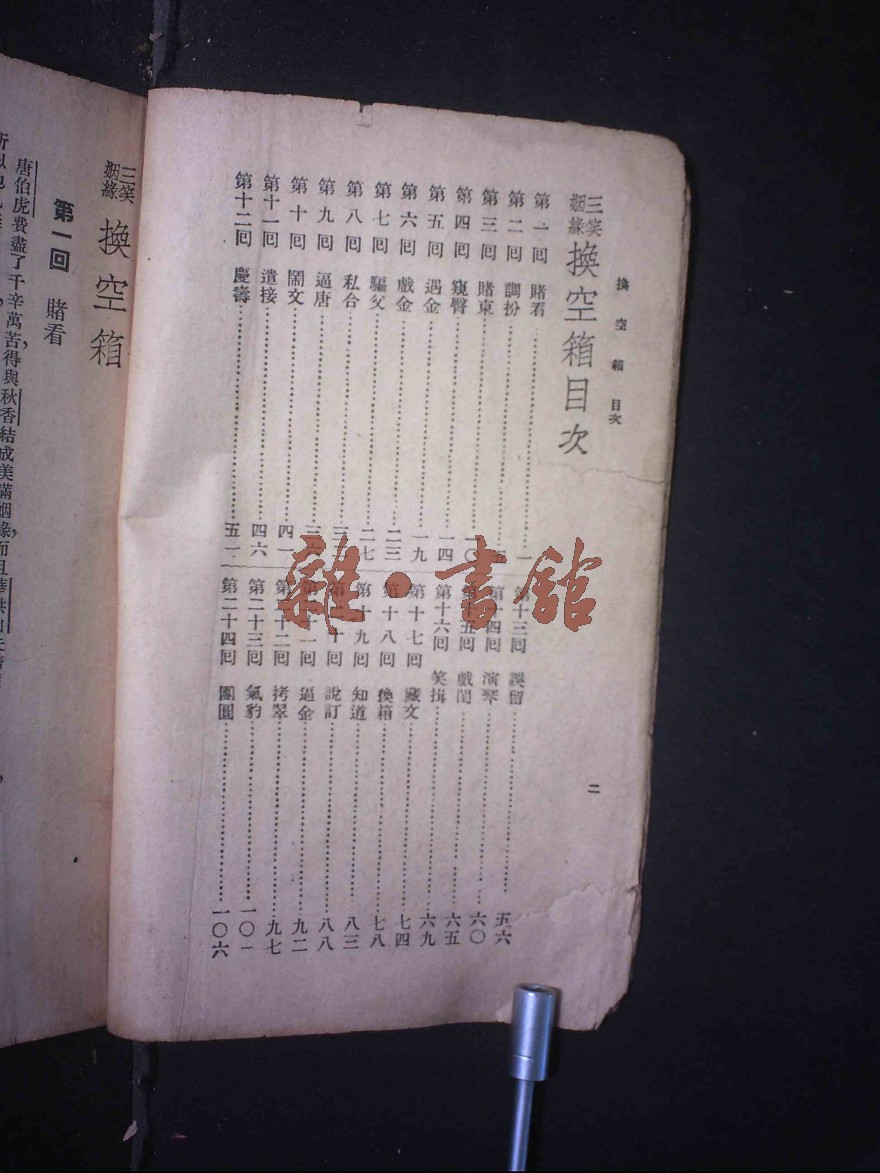 換空箱 目次
三笑姻緣 換空箱目次
第一回 賭看 一
第二回 調扮 五
第三回 賭東 一〇
第四回 窺臂 一四
第五回 遇金 一九
第六回 戲金 二三
第七回 騙父 二七
第八回 私合
第九回 逼唐
第十回 鬧文 四一
第十一回 遣接 四六
第十二回 慶壽 五一
第十三回 誤留 五六
第十四回 演琴 六〇
第十五回 戲閨 六五
第十六回 笑揖 六九
第十七回 藏文 七四
第十八回 換箱 七八
第十九回 知道 八三
第二十回 說訂 八八
第二十一回 逼金 九二
第二十二回 拷翠 九七
第二十三回 氣豹 一〇一
第二十四回 團圓 一〇六
二
雜·書館
三笑姻緣 換空箱
第一回 賭看
唐伯虎費盡了千辛萬苦，得與秋香結成美滿姻緣，而且華洪山